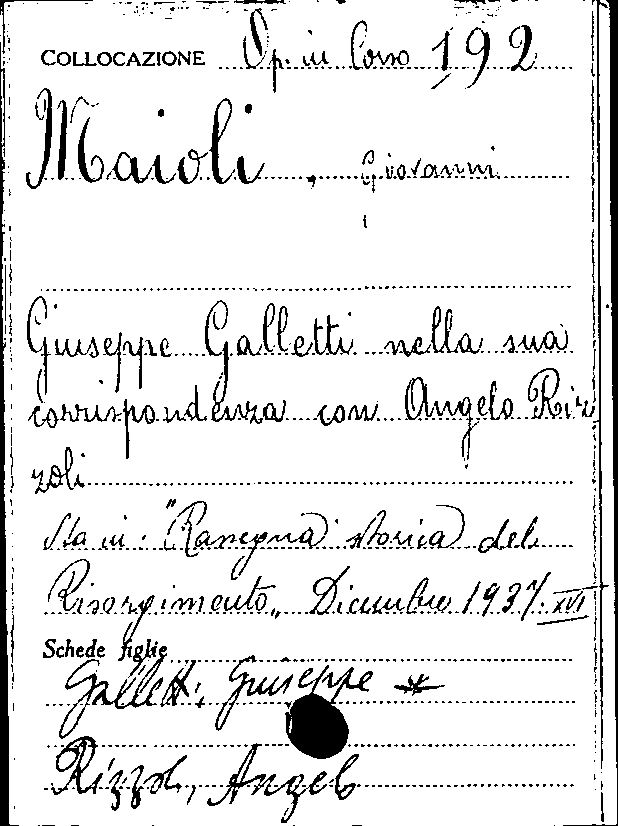 COLLOCAZIONE Op. in Corso 192
Maioli, Giovanni
Giuseppe Galletti nella sua
corrispondenza con Angelo Riz
zoli
Sta in: "Rassegna storica del
Risorgimento„ Dicembre 1937. XVI
Schede figlie
Galletti, Giuseppe *
Rizzoli, Angelo